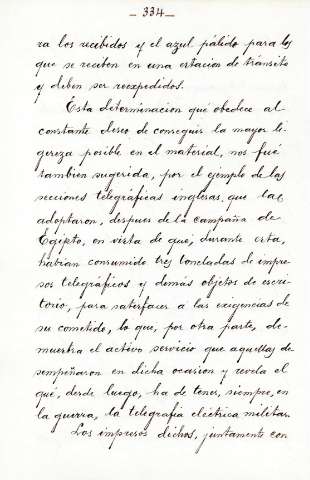 - 334 -
ra los recibidos y el azul pálido para los
que se reciben en una estacion de tránsito
y deben ser reexpedidos.
Esta determinacion que obedece al
constante deseo de conseguir la mayor li-
gereza posible en el material, nos fué
tambien sugerida, por el ejemplo de las
secciones telegráficas inglesas, que las
adoptaron, despues de la campaña de
Egipto, en vista de que, durante esta,
habian consumido tres toneladas de impre-
sos telegráficos y demás objetos de escri-
torio, para satisfacer á las exigencias de
su cometido, lo que, por otra parte, de-
muestra el activo servicio que aquellas de-
sempeñaron en dicha ocasion y revela el
qué, desde luego, ha de tener, siempre, en
la guerra, la telegrafia eléctrica militar.
Los impresos dichos, juntamente con